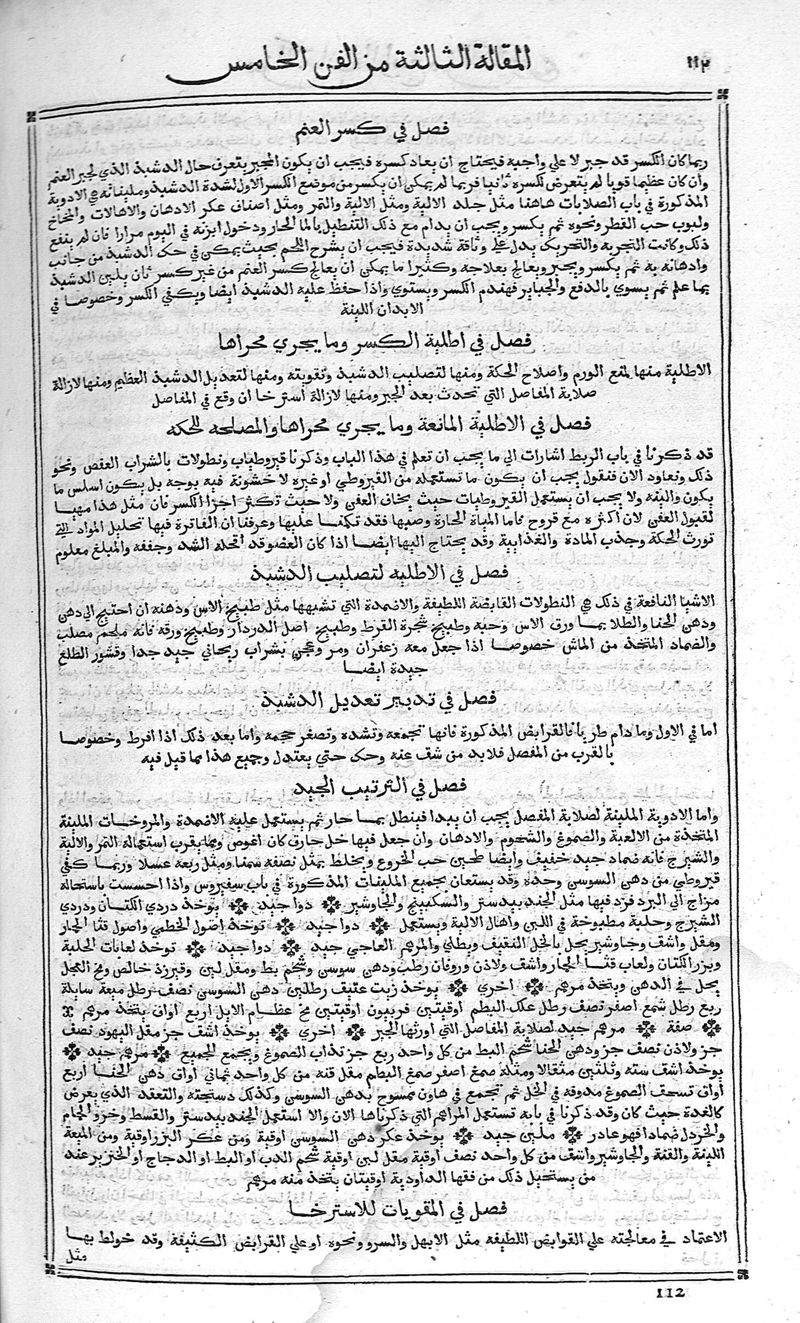 ١١٢
المقالة الثالثة من الفن الخامس
فصل في كسر العثم
ربما كان الكسر قد جبر لا علي واجبه فيحتاج ان يعاد كسره فيجب ان يكون المجبر يتعرف حال الدشبذ الذي لجبر العثم
وان كان عظيما قويا لم يتعرض لكسره ثانيا فربما لم يمكن ان يكسر من موضع الكسر الاول لشدة الدشبذ وملينانه هي الادوية
المذكورة في باب الصلابات هاهنا مثل جلد الالية ومثل الالية والتمر ومثل اصناف عكر الادهان والاهالات والمخاخ
ولبوب حب القطن ونحوه ثم يكسر ويجب ان يدام مع ذلك التنطيل بالما الحار ودخول ابزنه في اليوم مرارا فان لم ينفع
ذلك وكانت التجربه والتحريك يدل علي وثاقة شديدة فيجب ان يشرح اللحم بحيث يمكن في حك الدشبذ من جانب
وادهانه به ثم يكسر ويجبر ويعالج بعلاجه وكثيرا ما يمكن ان يعالج كسر العثم من غير كسر ثان بلين الدشبذ
بما علم ثم يسوي بالدفع والجباير فهندم الكسر ويستوي واذا حفظ عليه الدشبذ ايضا ويكفي الكسر وخصوصا في
الابدان اللينة
فصل في اطلية الكسر وما يجري مجراها
الاطلية منها لمنع الورم واصلاح الحكة ومنها لتصليب الدشبذ وتقويته ومنها لتعديل الدشبذ العظيم ومنها لازالة
صلابة المفاصل التي تحدث بعد الجبر ومنها لازالة استرخا ان وقع في المفاصل
فصل في الاطلية المانعة وما يجري مجراها والمصلحه للحكه
قد ذكرنا في باب الربط اشارات الي ما يجب ان تعلم في هذا الباب وذكرنا قيروطيات ونطولات بالشراب العفص ونحو
ذلك ونعاود الان فنقول يجب ان يكون ما تستعمله من القيروطي او غيره لا خشونة فيه بوجه بل يكون اسلس ما
يكون والينه ولا يجب ان يستعمل القيروطيات حيث يخاف العفن ولا حيث تكثر اجزا الكسر فان مثل هذا مهيا
لقبول العفن لان اكثره مع قروح فاما المياه الحارة وصبها فقد تكلمنا عليها وعرفنا ان الفاترة فيها تحليل المواد التي
تورث الحكة وجذب المادة والغذايية وقد يحتاج اليها ايضا اذا كان العضو قد اقحله الشد وجففه والمبلغ معلوم
فصل في الاطليه لتصليب الدشبذ
الاشيا النافعة في ذلك هي النطولات القابضة اللطيفة والاضمدة التي تشبهها مثل طبيخ الاس ودهنه ان احتيج الي دهن
ودهن الحنا والطلا بما ورق الاس وحبه وطبيخ شجرة القرط وطبيخ اصل الدردار وطبيخ ورقه فانه ملحم مصلب
والضماد المتخذ من الماش خصوصا اذا جعل معه زعفران ومر وعجن بشراب ريحاني جيد جدا وقشور الطلع
جيدة ايضا
فصل في تدبير تعديل الدشبذ
اما في الاول وما دام طريا فالقوابض المذكورة فانها تجمعه وتشده وتصغر حجمه واما بعد ذلك اذا افرط وخصوصا
بالقرب من المفصل فلابد من شق عنه وحك حتي يعتدل وجميع هذا مما قيل فيه
فصل في الترتيب الجيد
واما الادوية الملينة لصلابة المفصل يجب ان يبدا فينطل بما حار ثم يستعمل عليه الاضمدة والمروخات الملينة
المتخذة من الالعبة والصموغ والشحوم والادهان وان جعل فيها خل حار كان اغوص ومما يقرب استعماله التمر والالية
والشيرج فانه ضماد جيد خفيف وايضا طحين حب الخروع ويخلط بمثل نصفه سمنا ومثل ربعه عسلا وربما كفي
قيروطي من دهن السوسن وحده وقد يستعان بجميع الملينات المذكورة في باب سقيروس واذا احسست باستحالة
مزاج الي البرد فزد فيها مثل الجندبيدستر والسكبينج والجاوشير دوا جيد يوخذ دردي الكتان ودردي
الشيرج وحلبة مطبوخة في اللبن واهال الالية ويستعمل دوا جيد توخذ اصول الخطمي واصول قثا الحمار
ومقل واشق وجاوشير يحل بالخل الثقيف ويطلي والمرهم العاجي جيد دوا جيد توخذ لعابات الحلبة
وبزر الكتان ولعاب قثا الحمار واشق ولاذن وزوفا رطب ودهن سوسن وشحم بط ومقل لين وقنيرزد خالص ومخ العجل
يحل في الدهن ويتخذ مرهم اخري يوخذ زيت عتيق رطلين دهن السوسن نصف رطل ميعة سايلة
ربع رطل شمع اصفر نصف رطل علك البطم اوقيتين فربيون اوقيتين مخ عظام الايل اربع اواق يتخذ مرهم
صفة مرهم جيد لصلابة المفاصل التي اورثها الجبر اخري يوخذ اشق جز مقل اليهود نصف
جز ولاذن نصف جز ودهن الحنا شحم البط من كل واحد ربع جز تذاب الصموغ ويجمع الجميع مرهم جيد
يوخذ اشق سته وثلثين مثقالا ومثله صمغ اصفر صمغ البطم مقل قنه من كل واحد ثماني اواق دهن الحنا اربع
اواق تسحق الصموغ مدوفه في الخل ثم تجمع في هاون ممسوح بدهن السوسن وكذلك دستجته والتعقد الذي يعرض
كالغدة حيث كان وقد ذكرنا في بابه تستعمل المراهم التي ذكرناها الان والا استعمل الجندبيدستر والقسط وخرو الحمام
والخردل ضمادا فهو غادر ملين جيد يوخذ عكر دهن السوسن اوقية ومن عكر البزر اوقية ومن الميعة
اللينة والقنة والجاوشير واشق من كل واحد نصف اوقية مقل لين اوقية شحم الدب او البط او الدجاج او الخنزير عند
من يستحيل ذلك من فقها الداودية اوقيتان يتخذ منه مرهم
فصل في المقويات للاسترخا
الاعتماد في معالجته علي القوابض اللطيفه مثل الابهل والسرو ونحوه او علي القوابض الكثيفة وقد خولط بها
مثل
112